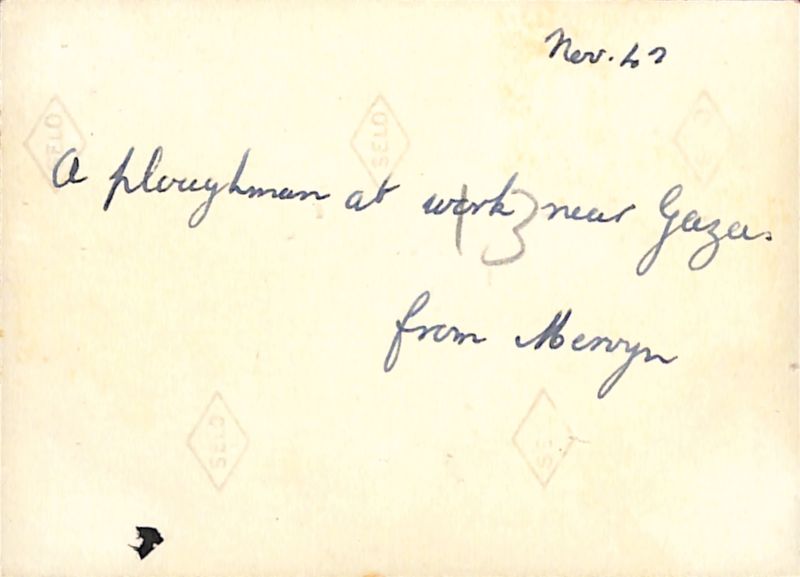 Nov. 42
A ploughman at work near Gaza.
13
from Mervyn
SELO
SELO
SELO
SELO